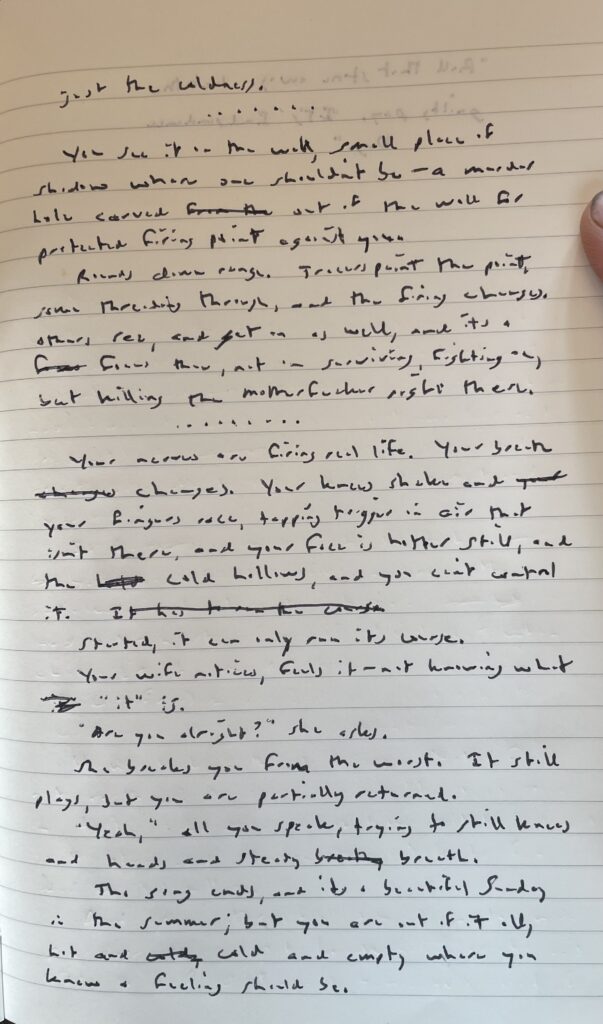 just the coldness.
. . . . . . .
You see it in the wall, small place of
shadow where one shouldn't be – a murder
hole carved from the out of the wall for
protected firing point against you.
Rounds down range. Tracers point the point,
some threading through, and the firing changes.
Others see, and get on as well, and its a
focus then, not on surviving, fighting on,
but killing the motherfucker right there.
. . . . . . . .
Your nerves are firing real life. Your breath
changes changes. Your knees shake and your
your fingers race, tapping trigger in air that
isnt there, and your face is hotter still, and
the cold hollows, and you cant control
it. It has to run the course
Started, it can only run its course.
Your wife notices, feels it – not knowing what
"it" is.
"Are you alright?" she asks.
She breaks you from the worst. It still
plays, but you are partially returned.
"Yeah," all you speak, trying to still knees
and hands and steady breath.
The song ends, and its a beautiful Sunday
in the summer; but you are out of it all,
hot and cold, cold and empty where you
know a feeling should be.